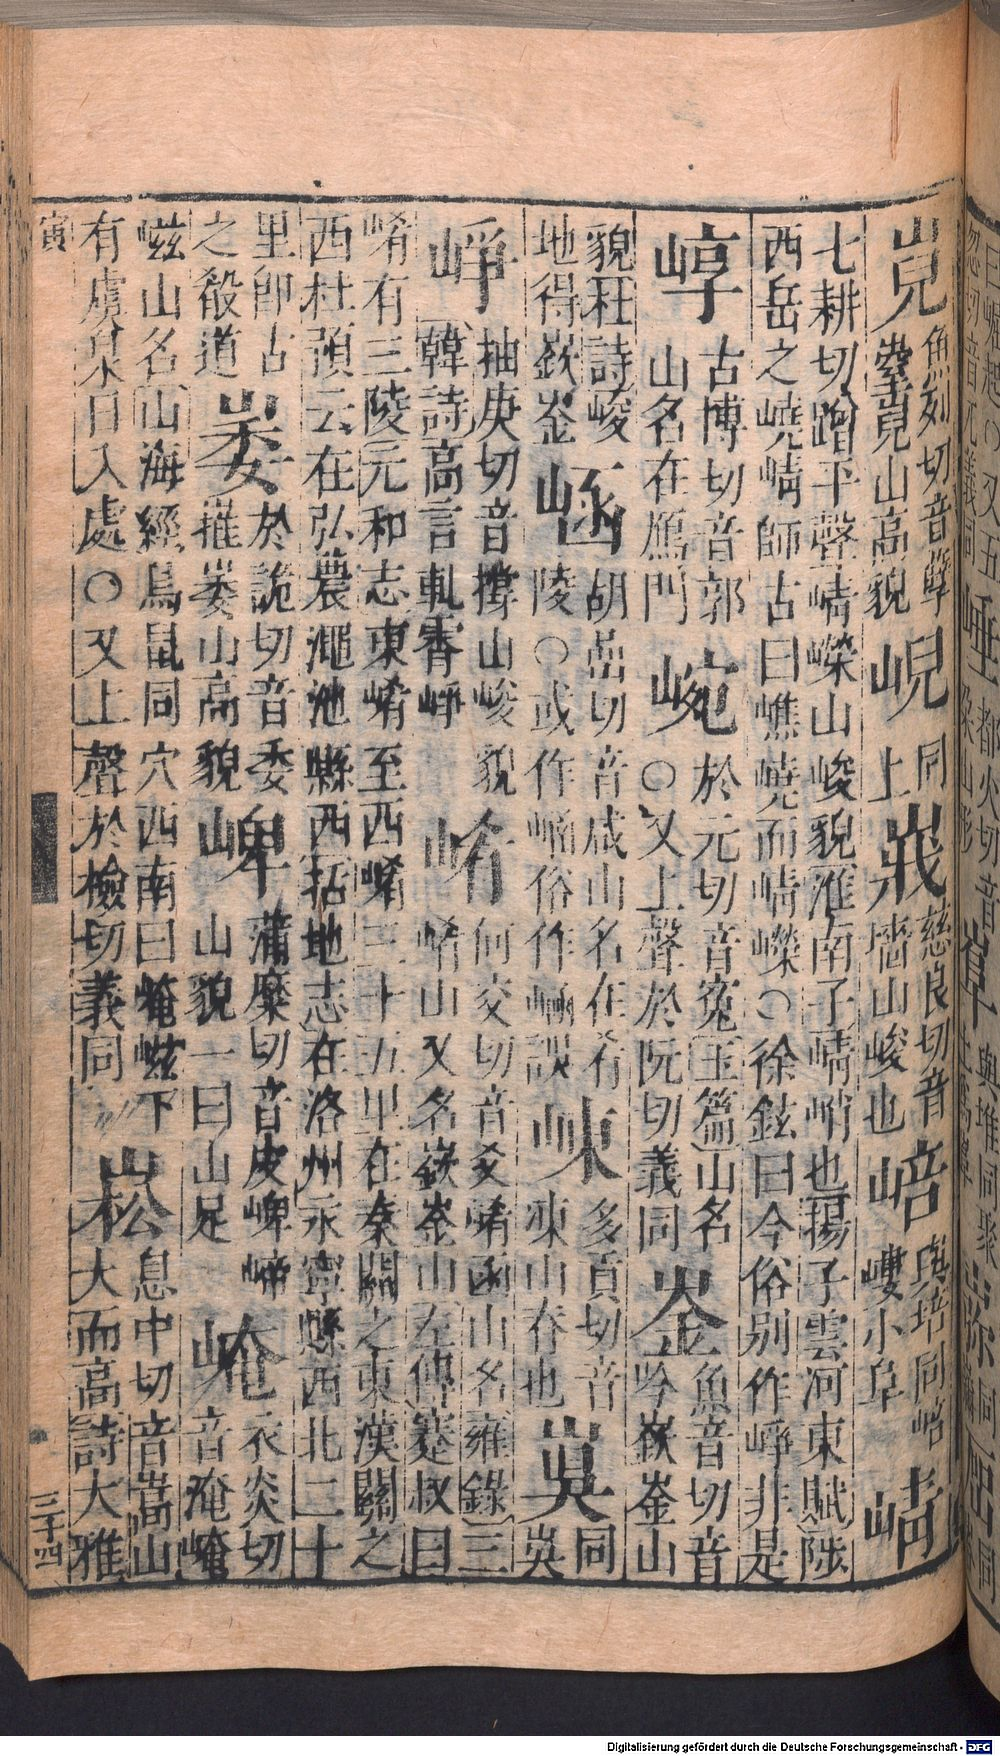 魚列切音孽山高貌 同上 慈良切音墻山峻也 㟝 與培同㟝嶁小阜 崝
七耕切蹭平聲崝嶸山峻貌淮南子崝峭也揚子雲河東賦陟西岳之嶢崝師古曰嶕嶢而崝嶸○徐鉉曰今俗別作崢非是
崞 古博切音郭山名在鴈門 於元切音寃玉篇山名○又上聲於阮切義同 崟 魚音切音吟嶔崟山
貌杜詩峻地得嶔崟 崡 胡嵒切音咸山名在肴陵○或作俗作誤 崠 多貢切音凍山脊也 同
崢 抽庚切音撐山峻貌韓詩高言軋霄崢 崤 何交切音爻崤函山名雍錄三崤山又名嶔崟山左傳蹇叔曰
崤有三陵元和志東崤至西崤三十五里在秦關之東漢關之西杜預云在弘農澠池縣西括地志在洛州永寧縣西北二十
里卽古之殽道 崣 於詭切音委嶊崣山高貌 崥 蒲糜切音皮崥崹山貌一曰山足 崦 衣炎切音淹崦
嵫山名山海經鳥鼠同穴西南曰崦嵫下有虞泉日入處○又上聲於檢切義同 崧 息中切音嵩山大而高詩大雅
寅
三十四
Digitalisierung gefördert durch die Deutsche Forschungsgemeinschaft - DFG